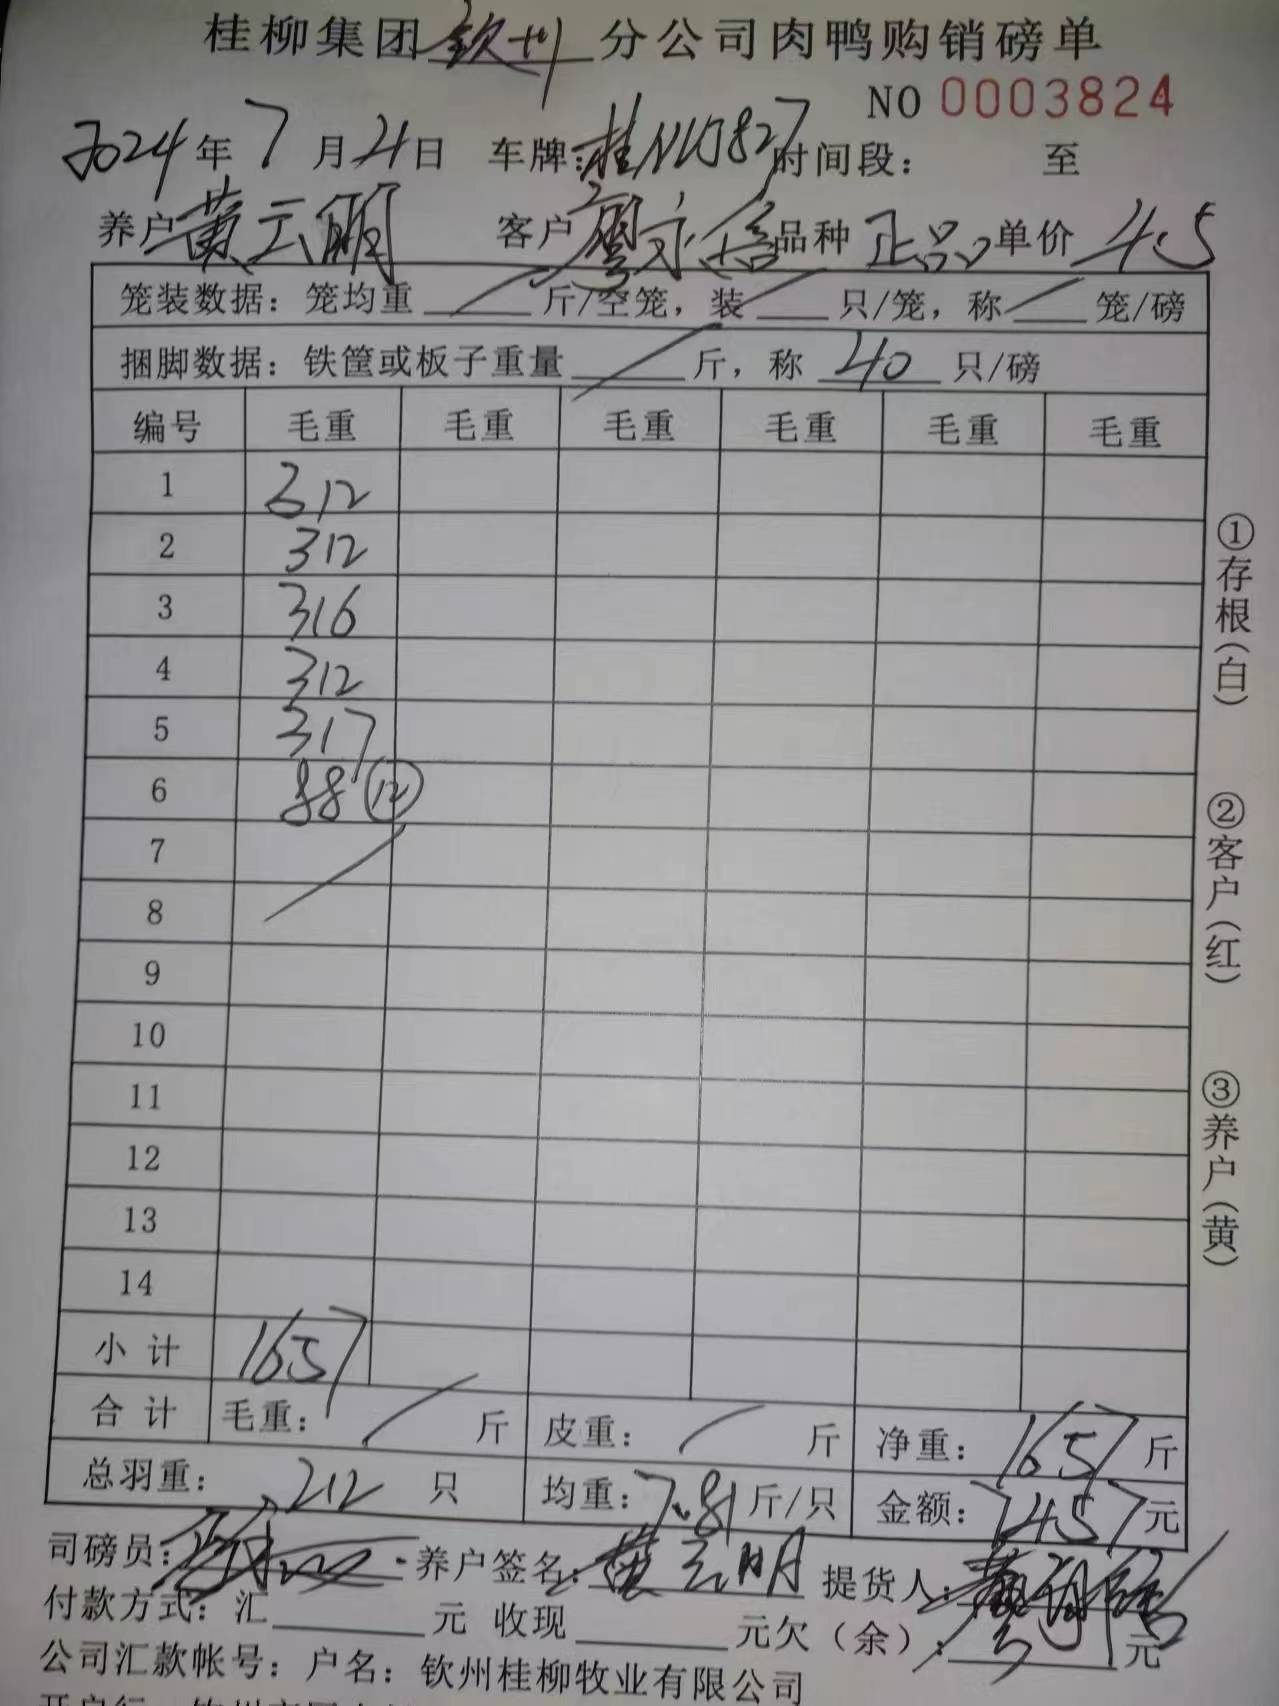 桂柳集团 钦州 分公司肉鸭购销磅单
NO 0003824
2024年7月21日 车牌：桂 时间段： 至
养户 黄云明 客户 廖永 品种 正品 单价 4.5
笼装数据：笼均重 / 斤/空笼，装 / 只/笼，称 / 笼/磅
捆脚数据：铁筐或板子重量 / 斤，称 40 只/磅
编号 毛重 毛重 毛重 毛重 毛重 毛重
1 312
2 312
3 316
4 312
5 317
6 88 ⑫
7 /
8
9
10
11
12
13
14
小计 1657
合计 毛重： / 斤 皮重： / 斤 净重：1657 斤
总羽重： 212 只 均重：7.81 斤/只 金额：7457 元
司磅员： 养户签名：黄云明 提货人：
付款方式：汇 元 收现 元欠（余）： 元
公司汇款帐号：户名：钦州桂柳牧业有限公司
①存根（白）
②客户（红）
③养户（黄）